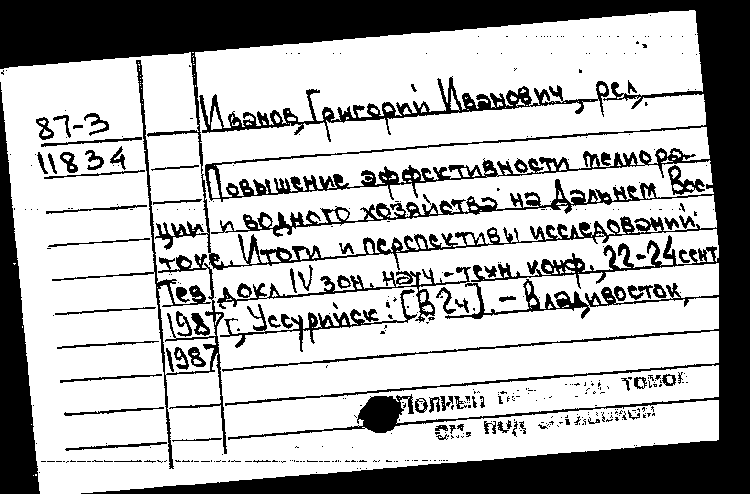 87-3
11834
Иванов, Григорий Иванович, ред.
Повышение эффективности мелиора-
ции и водного хозяйства на Дальнем Вос-
токе. Итоги и перспективы исследований:
Тез. докл. IV зон. науч.-техн. конф., 22-24 сент.
1987 г., Уссурийск: [В 2 ч.]. - Владивосток,
1987
Полный томов
см. под